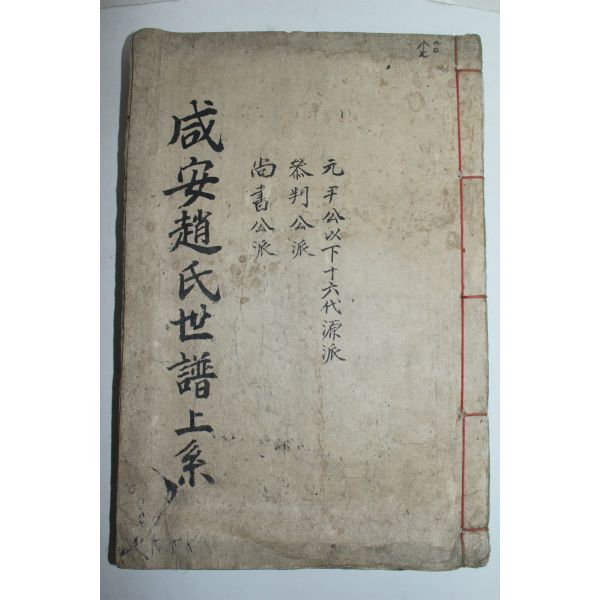 元平公以下十六代源派
叅判公派
尙書公派
咸安趙氏世譜上系